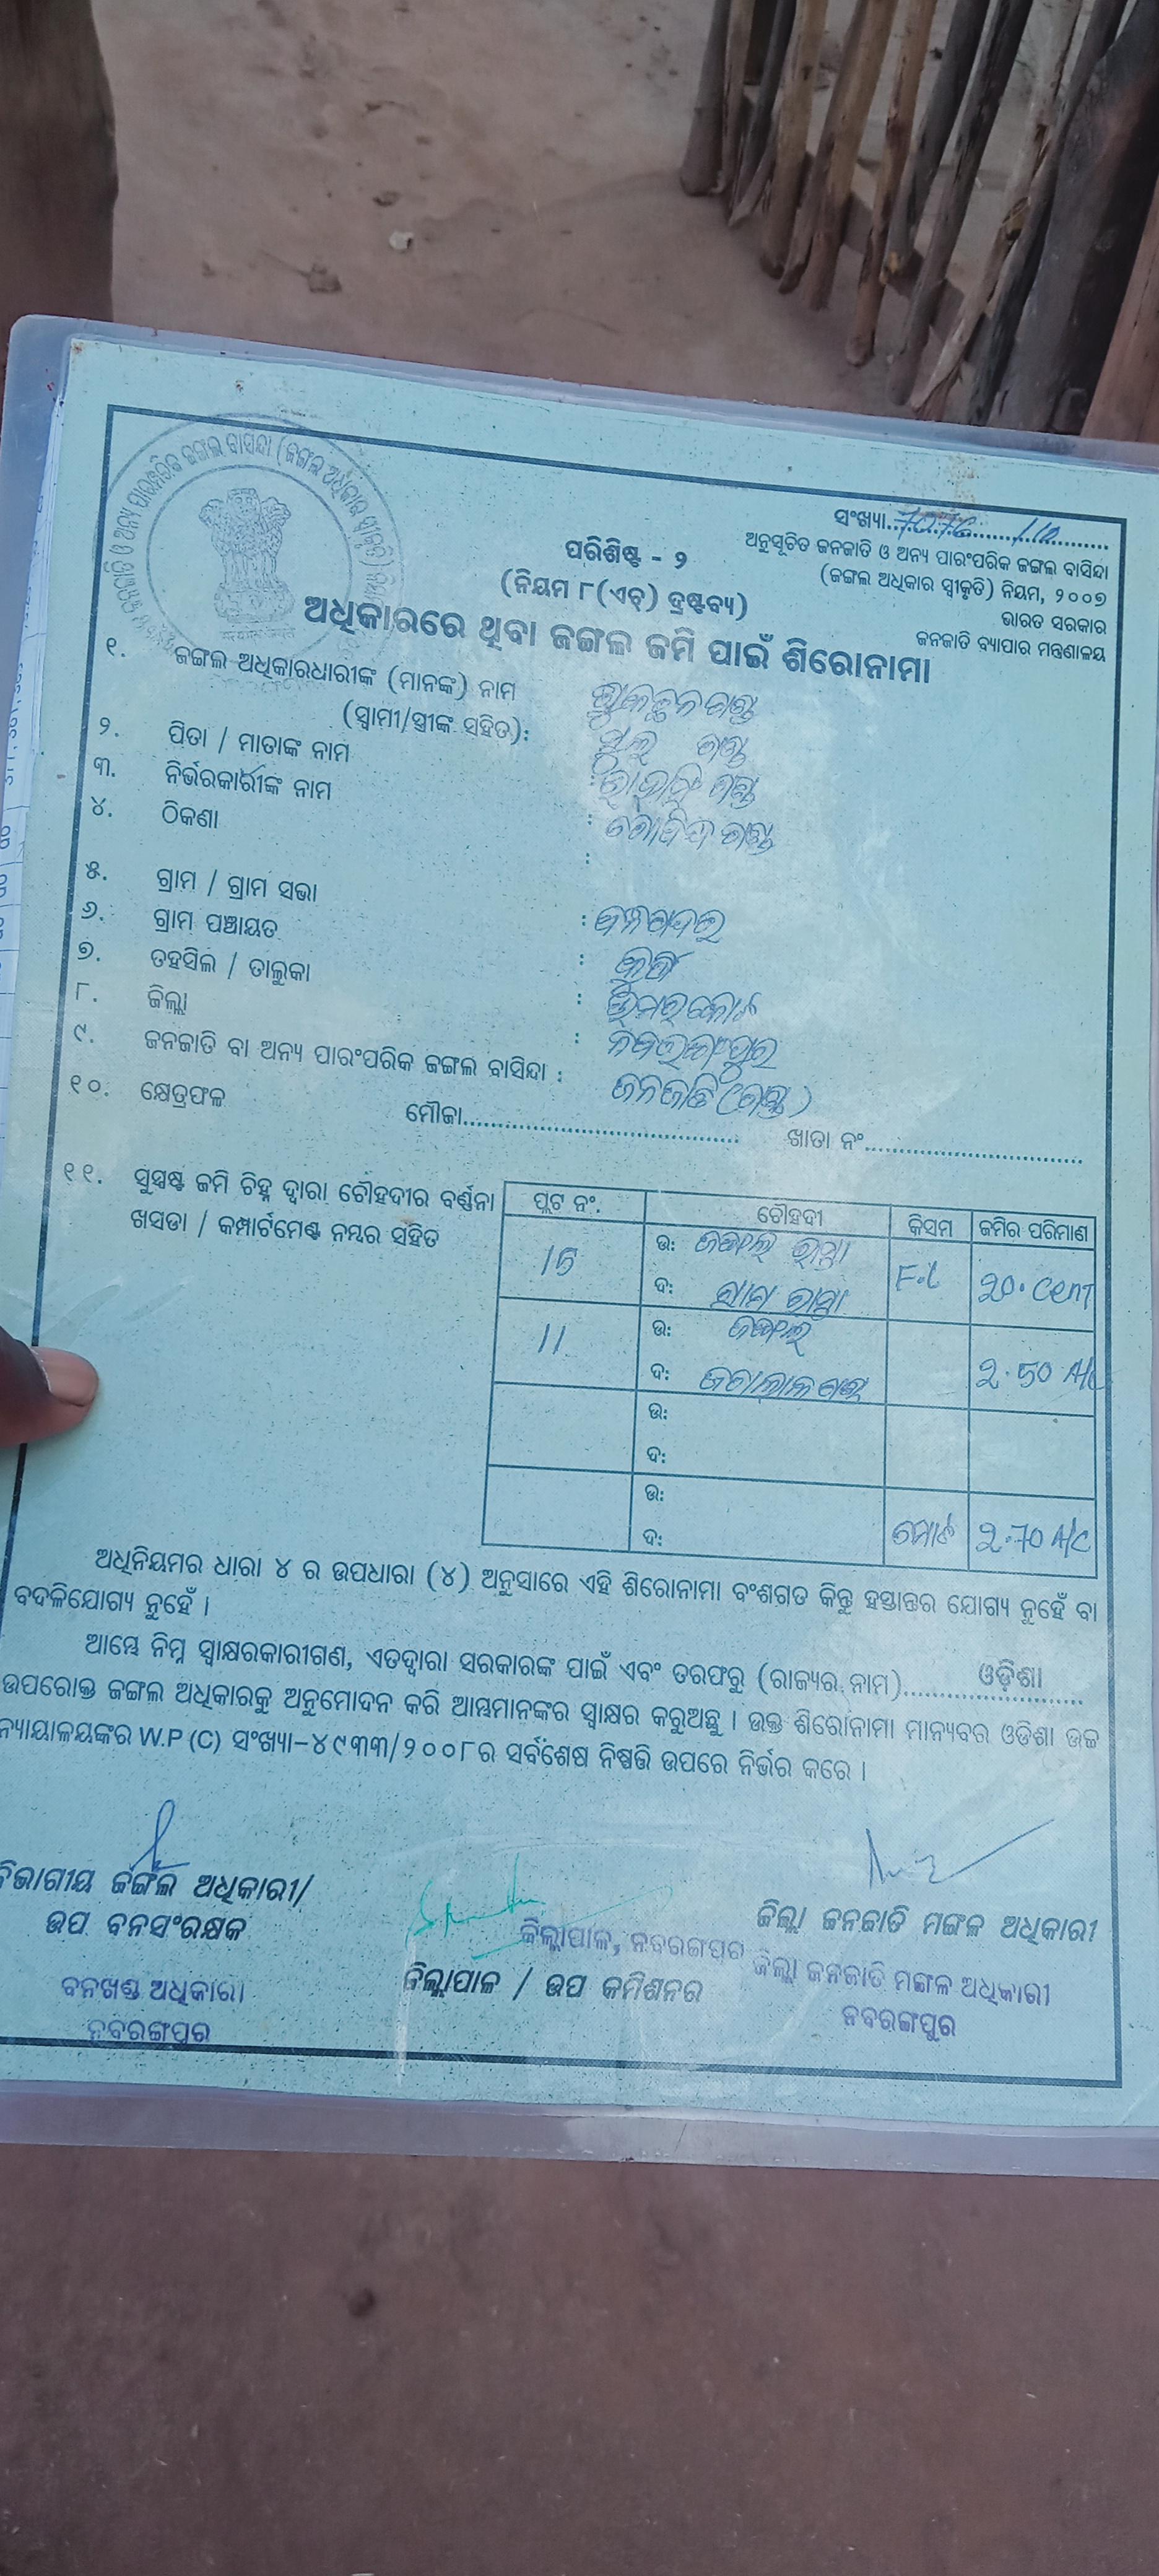 ସଂଖ୍ୟା...7076....../10..........
ଅନୁସୂଚିତ ଜନଜାତି ଓ ଅନ୍ୟ ପାରଂପରିକ ଜଙ୍ଗଲ ବାସିନ୍ଦା
(ଜଙ୍ଗଲ ଅଧିକାର ସ୍ୱୀକୃତି) ନିୟମ, ୨୦୦୭
ଭାରତ ସରକାର
ଜନଜାତି ବ୍ୟାପାର ମନ୍ତ୍ରଣାଳୟ
ପରିଶିଷ୍ଟ - ୨
(ନିୟମ ୮(ଏଚ୍) ଦ୍ରଷ୍ଟବ୍ୟ)
ଅଧିକାରରେ ଥିବା ଜଙ୍ଗଲ ଜମି ପାଇଁ ଶିରୋନାମା
୧. ଜଙ୍ଗଲ ଅଧିକାରଧାରୀଙ୍କ (ମାନଙ୍କ) ନାମ
(ସ୍ୱାମୀ/ସ୍ତ୍ରୀଙ୍କ ସହିତ):
୨. ପିତା / ମାତାଙ୍କ ନାମ
୩. ନିର୍ଭରକାରୀଙ୍କ ନାମ :
୪. ଠିକଣା :
୫. ଗ୍ରାମ / ଗ୍ରାମ ସଭା :
୬. ଗ୍ରାମ ପଞ୍ଚାୟତ :
୭. ତହସିଲ / ତାଲୁକା : ଉମରକୋଟ
୮. ଜିଲ୍ଲା : ନବରଙ୍ଗପୁର
୯. ଜନଜାତି ବା ଅନ୍ୟ ପାରଂପରିକ ଜଙ୍ଗଲ ବାସିନ୍ଦା : ଜନଜାତି (ଗଣ୍ଡ)
୧୦. କ୍ଷେତ୍ରଫଳ ମୌଜା........................ ଖାତା ନଂ........................
୧୧. ସୁସ୍ପଷ୍ଟ ଜମି ଚିହ୍ନ ଦ୍ୱାରା ଚୌହଦୀର ବର୍ଣ୍ଣନା
ଖସଡା / କମ୍ପାର୍ଟମେଣ୍ଟ ନମ୍ବର ସହିତ
ପ୍ଲଟ ନଂ. ଚୌହଦୀ କିସମ ଜମିର ପରିମାଣ
15 ଉ: ଜଙ୍ଗଲ ରାସ୍ତା F.L 20. cent
ଦ: ଗ୍ରାମ ରାସ୍ତା
11 ଉ: ଜଙ୍ଗଲ 2.50 A/C
ଦ:
ଉ:
ଦ:
ଉ:
ଦ: ମୋଟ 2.70 A/C
ଅଧିନିୟମର ଧାରା ୪ ର ଉପଧାରା (୪) ଅନୁସାରେ ଏହି ଶିରୋନାମା ବଂଶଗତ କିନ୍ତୁ ହସ୍ତାନ୍ତର ଯୋଗ୍ୟ ନୁହେଁ ବା
ବଦଳିଯୋଗ୍ୟ ନୁହେଁ ।
ଆମ୍ଭେ ନିମ୍ନ ସ୍ୱାକ୍ଷରକାରୀଗଣ, ଏତଦ୍ୱାରା ସରକାରଙ୍କ ପାଇଁ ଏବଂ ତରଫରୁ (ରାଜ୍ୟର ନାମ)........ଓଡ଼ିଶା........
ଉପରୋକ୍ତ ଜଙ୍ଗଲ ଅଧିକାରକୁ ଅନୁମୋଦନ କରି ଆମ୍ଭମାନଙ୍କର ସ୍ୱାକ୍ଷର କରୁଅଛୁ । ଉକ୍ତ ଶିରୋନାମା ମାନ୍ୟବର ଓଡିଶା ଉଚ୍ଚ
ନ୍ୟାୟାଳୟଙ୍କର W.P (C) ସଂଖ୍ୟା-୪୯୩୩/୨୦୦୮ର ସର୍ବଶେଷ ନିଷ୍ପତ୍ତି ଉପରେ ନିର୍ଭର କରେ ।
ବିଭାଗୀୟ ଜଙ୍ଗଲ ଅଧିକାରୀ/
ଉପ ବନସଂରକ୍ଷକ
ବନଖଣ୍ଡ ଅଧିକାରୀ
ନବରଙ୍ଗପୁର
ଜିଲ୍ଲାପାଳ, ନବରଙ୍ଗପୁର
ଜିଲ୍ଲାପାଳ / ଉପ କମିଶନର
ଜିଲ୍ଲା ଜନଜାତି ମଙ୍ଗଳ ଅଧିକାରୀ
ଜିଲ୍ଲା ଜନଜାତି ମଙ୍ଗଳ ଅଧିକାରୀ
ନବରଙ୍ଗପୁର